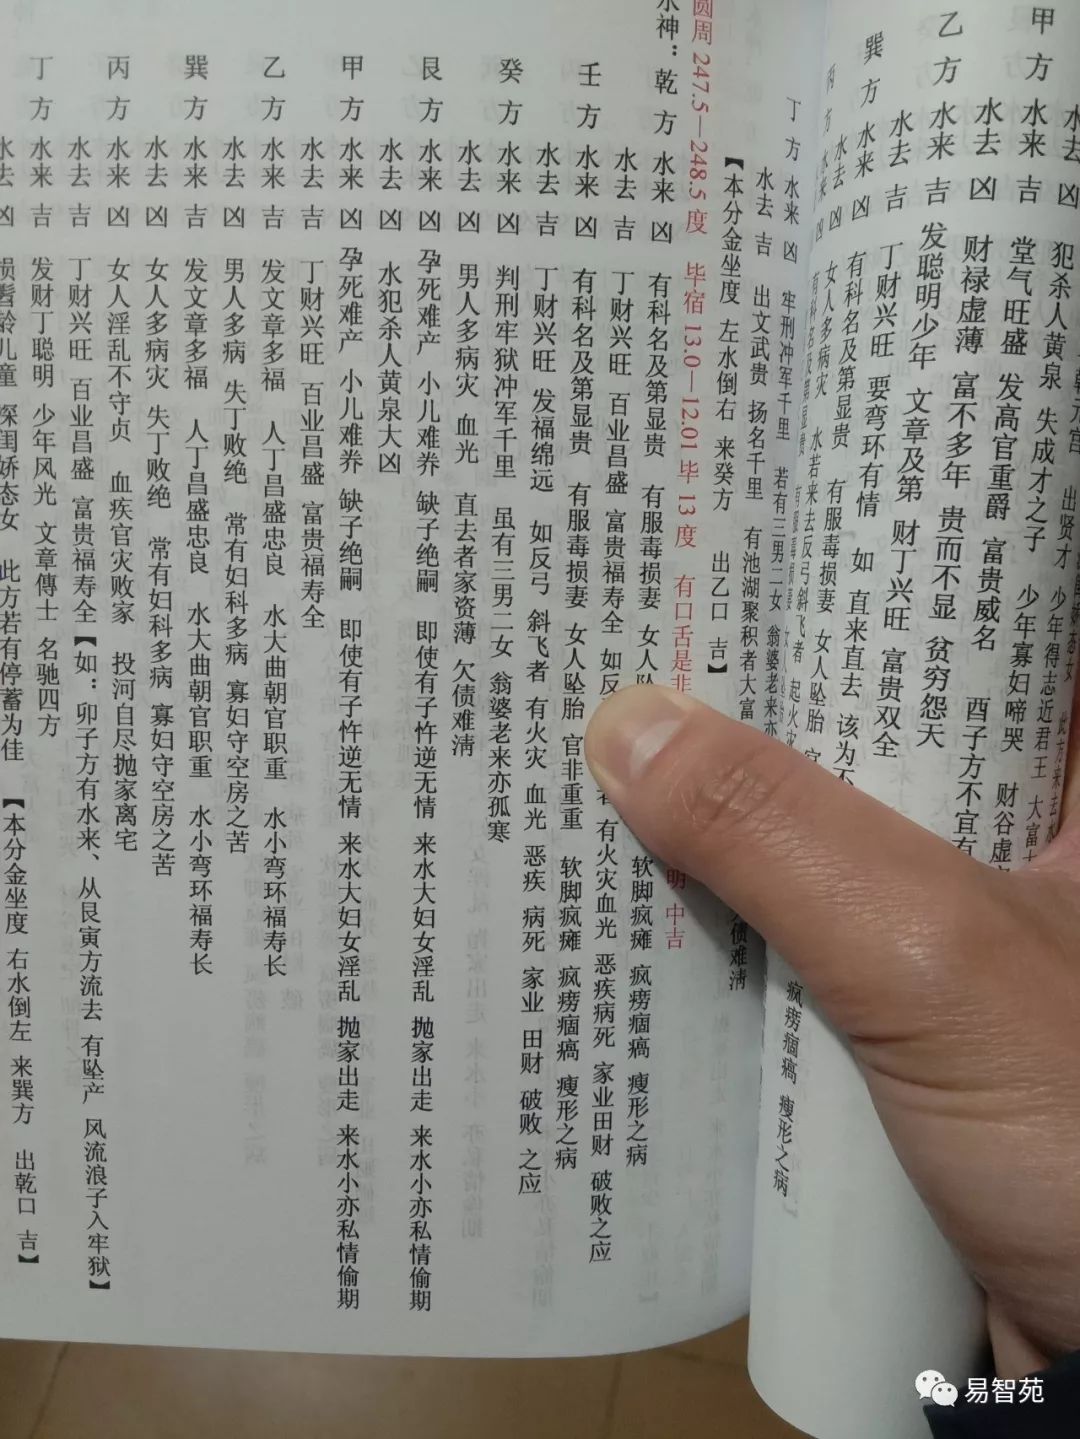 甲方 水来 吉 堂气旺盛 发高官重爵 富贵威名
水去 凶 财禄虚薄 富不多年 贵而不显 贫穷怨天
乙方 水来 吉 发聪明少年 文章及第 财丁兴旺 富贵双全
水去 吉 丁财兴旺 要弯环有情 如 直来直去 该为不
巽方 水来 凶 有科名及第显贵 有服毒损妻 女人坠胎
丁方 水来 凶 牢刑冲军千里 若有三男二女 翁婆老来亦
水去 吉 出文武贵 扬名千里 有池湖聚积者大富
【本分金坐度 左水倒右 来癸方 出乙口 吉】
圆周 247.5—248.5 度 毕宿 13.0—12.01 毕 13 度 有口舌是非 明 中吉
水神：乾方 水来 凶 有科名及第显贵 有服毒损妻 女人坠 软脚疯瘫 疯痨痼瘑 瘦形之病
水去 吉 丁财兴旺 百业昌盛 富贵福寿全 如反 者 有火灾血光 恶疾病死 家业田财 破败之应
壬方 水来 凶 有科名及第显贵 有服毒损妻 女人坠胎 官非重重 软脚疯瘫 疯痨痼瘑 瘦形之病
水去 吉 丁财兴旺 发福绵远 如反弓 斜飞者 有火灾 血光 恶疾 病死 家业 田财 破败 之应
癸方 水来 凶 判刑牢狱冲军千里 虽有三男二女 翁婆老来亦孤寒
水去 凶 男人多病灾 血光 直去者家资薄 欠债难清
艮方 水来 凶 孕死难产 小儿难养 缺子绝嗣 即使有子忤逆无情 来水大妇女淫乱 抛家出走 来水小亦私情偷期
水去 凶 水犯杀人黄泉大凶
甲方 水来 凶 孕死难产 小儿难养 缺子绝嗣 即使有子忤逆无情 来水大妇女淫乱 抛家出走 来水小亦私情偷期
水去 吉 丁财兴旺 百业昌盛 富贵福寿全
乙方 水来 吉 发文章多福 人丁昌盛忠良 水大曲朝官职重 水小弯环福寿长
水去 凶 男人多病 失丁败绝 常有妇科多病 寡妇守空房之苦
巽方 水来 吉 发文章多福 人丁昌盛忠良 水大曲朝官职重 水小弯环福寿长
水去 凶 女人多病灾 失丁败绝 常有妇科多病 寡妇守空房之苦
丙方 水来 凶 女人淫乱不守贞 血疾官灾败家 投河自尽抛家离宅
水去 吉 丁财兴旺 百业昌盛 富贵福寿全【如：卯子方有水来、从艮寅方流去 有坠产 风流浪子入牢狱】
丁方 水来 吉 发财丁聪明 少年风光 文章傅士 名驰四方
水去 凶 损髫龄儿童 深闺娇态女 此方若有停蓄为佳 【本分金坐度 右水倒左 来巽方 出乾口 吉】
易智苑